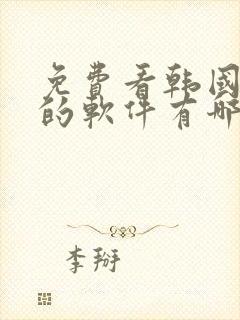 免費看韓國
的軟件有哪
李掰